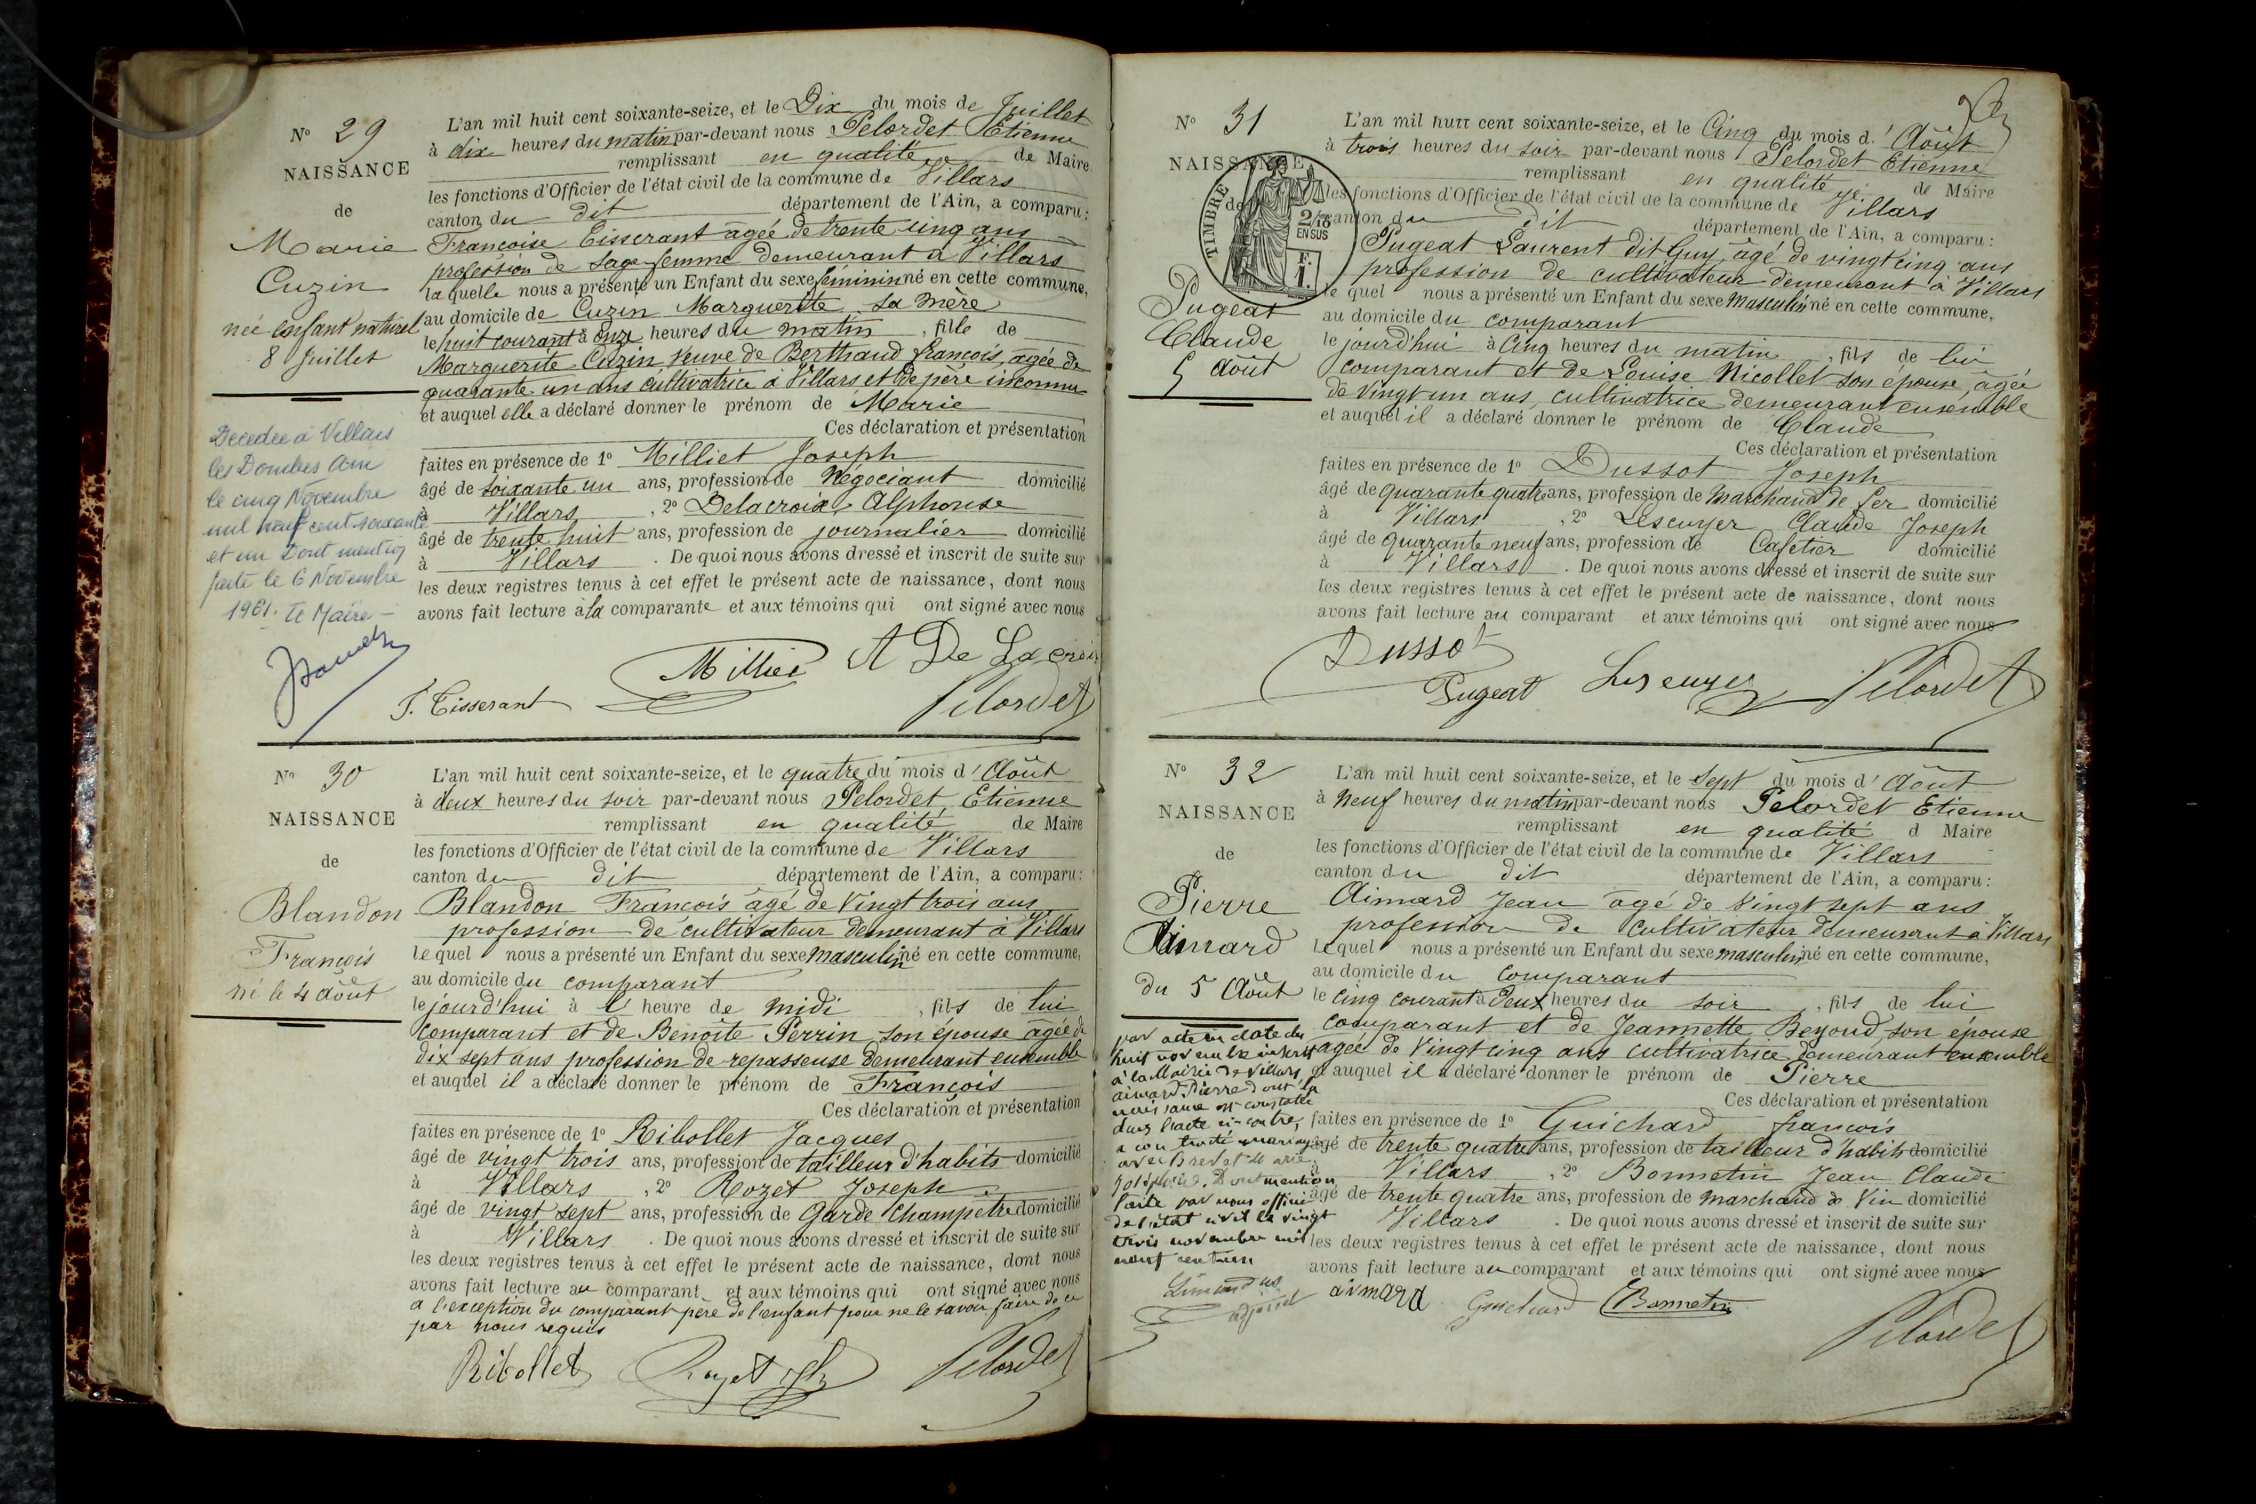 N° 29
NAISSANCE
de
Marie
Cuzin
née enfant naturel
8 Juillet
Décédée à Villars
les Dombes Ain
le cinq Novembre
mil neuf cent soixante
et un Dont mention
faite le 6 Novembre
1961. Le Maire
L'an mil huit cent soixante-seize, et le Dix du mois de Juillet
à dix heures du matin par-devant nous Pelordet Etienne
remplissant en qualité de Maire
les fonctions d'Officier de l'état civil de la commune de Villars
canton du dit département de l'Ain, a comparu:
Françoise Tisserant agée de trente cinq ans
profession de Sage femme demeurant à Villars
laquelle nous a présenté un Enfant du sexe féminin né en cette commune,
au domicile de Cuzin Marguerite sa mère
le huit courant à onze heures du matin, fille de
Marguerite Cuzin veuve de Berthaud françois, agée de
quarante-un ans cultivatrice à Villars et de père inconnu
et auquel elle a déclaré donner le prénom de Marie
Ces déclaration et présentation
faites en présence de 1° Milliet Joseph
âgé de soixante un ans, profession de Négociant domicilié
à Villars, 2° Delacroix Alphonse
âgé de trente huit ans, profession de journalier domicilié
à Villars. De quoi nous avons dressé et inscrit de suite sur
les deux registres tenus à cet effet le présent acte de naissance, dont nous
avons fait lecture à la comparante et aux témoins qui ont signé avec nous
Milliet A De Lacroix
F. Tisserant Pelordet
N° 30
NAISSANCE
de
Blandon
François
né le 4 Août
L'an mil huit cent soixante-seize, et le quatre du mois d'Août
à deux heures du soir par-devant nous Pelordet Etienne
remplissant en qualité de Maire
les fonctions d'Officier de l'état civil de la commune de Villars
canton du dit département de l'Ain, a comparu:
Blandon François âgé de Vingt trois ans
profession de cultivateur demeurant à Villars
lequel nous a présenté un Enfant du sexe masculin né en cette commune,
au domicile du comparant
le jourd'hui à l' heure de midi, fils de lui
comparant et de Benoîte Perrin son épouse agée de
dix sept ans profession de repasseuse demeurant ensemble
et auquel il a déclaré donner le prénom de François
Ces déclaration et présentation
faites en présence de 1° Ribollet Jacques
âgé de vingt trois ans, profession de tailleur d'habits domicilié
à Villars, 2° Rozet Joseph
âgé de vingt sept ans, profession de Garde Champêtre domicilié
à Villars. De quoi nous avons dressé et inscrit de suite sur
les deux registres tenus à cet effet le présent acte de naissance, dont nous
avons fait lecture au comparant et aux témoins qui ont signé avec nous
a l'exception du comparant père de l'enfant pour ne le savoir faire de ce
par nous requis
Ribollet Rozet Pelordet
N° 31
NAISSANCE
de
TIMBRE
2/10
EN SUS
F.
1.
Pugeat
Claude
5 Août
L'an mil huit cent soixante-seize, et le Cinq du mois d'Août
à trois heures du soir par-devant nous Pelordet Etienne
remplissant en qualité de Maire
les fonctions d'Officier de l'état civil de la commune de Villars
canton du dit département de l'Ain, a comparu:
Pugeat Laurent dit Guy, âgé de vingt cinq ans
profession de cultivateur demeurant à Villars
le quel nous a présenté un Enfant du sexe Masculin né en cette commune,
au domicile du comparant
le jourd'hui à Cinq heures du matin, fils de lui
comparant et de Louise Nicollet son épouse, âgée
de vingt un ans, cultivatrice demeurant ensemble
et auquel il a déclaré donner le prénom de Claude
Ces déclaration et présentation
faites en présence de 1° Dussot Joseph
âgé de quarante quatre ans, profession de Marchand de fer domicilié
à Villars, 2° Lescuyer Claude Joseph
âgé de quarante neuf ans, profession de Cafetier domicilié
à Villars. De quoi nous avons dressé et inscrit de suite sur
les deux registres tenus à cet effet le présent acte de naissance, dont nous
avons fait lecture au comparant et aux témoins qui ont signé avec nous
Dussot
Pugeat Lescuyer Pelordet
N° 32
NAISSANCE
de
Pierre
Aimard
du 5 Août
par acte en date du
huit novembre inscrit
à la Mairie de Villars
aimard Pierre dont la
naissance est constatée
dans l'acte ci-contre,
a contracté mariage
avec Brevet Marie
Joséphine. Dont mention
faite par nous officier
de l'état civil le vingt
trois novembre mil
neuf cent un
adjoint
L'an mil huit cent soixante-seize, et le Sept du mois d'Août
à Neuf heures du matin par-devant nous Pelordet Etienne
remplissant en qualité d Maire
les fonctions d'Officier de l'état civil de la commune de Villars
canton du dit département de l'Ain, a comparu:
Aimard Jean âgé de Vingt sept ans
profession de Cultivateur demeurant à Villars
lequel nous a présenté un Enfant du sexe masculin né en cette commune,
au domicile du comparant
le cinq courant à Deux heures du soir, fils de lui
comparant et de Jeannette Beyoud, son épouse
agée de Vingt cinq ans cultivatrice demeurant ensemble
et auquel il a déclaré donner le prénom de Pierre
Ces déclaration et présentation
faites en présence de 1° Guichard françois
âgé de trente quatre ans, profession de tailleur d'habits domicilié
à Villars, 2° Bonnetin Jean Claude
âgé de trente quatre ans, profession de marchand de Vin domicilié
Villars. De quoi nous avons dressé et inscrit de suite sur
les deux registres tenus à cet effet le présent acte de naissance, dont nous
avons fait lecture au comparant et aux témoins qui ont signé avec nous
aimard Guichard Bonnetin
Pelordet